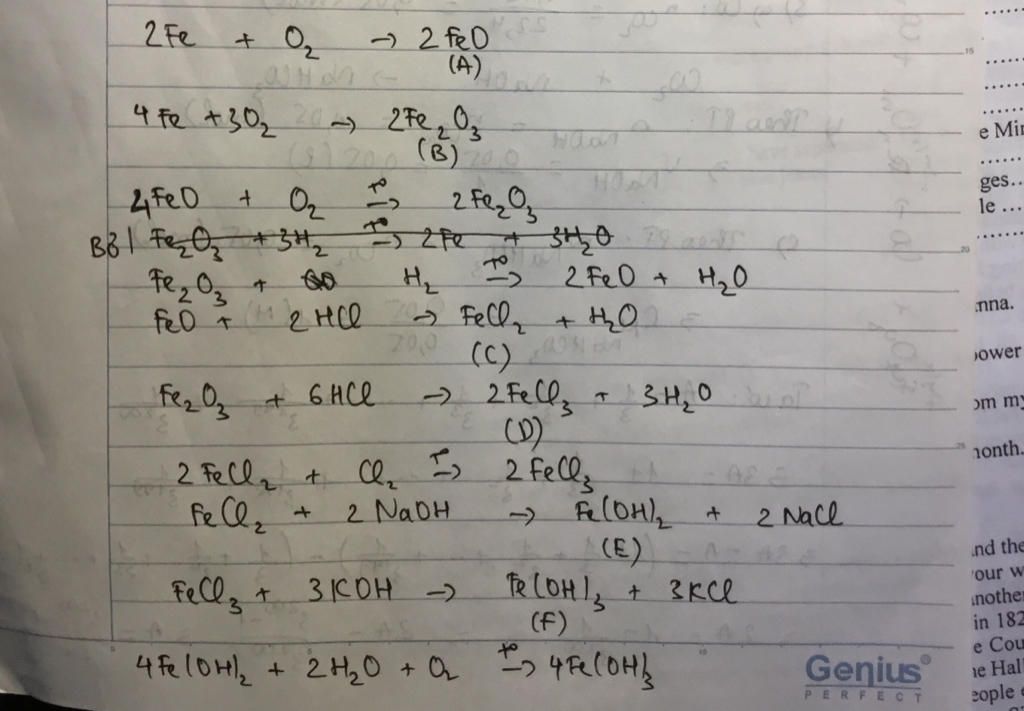 2Fe + O₂ → 2FeO
(A)
4Fe + 3O₂ → 2Fe₂O₃
(B)
4FeO + O₂ →(t°) 2Fe₂O₃
B3| Fe₂O₃ + 3H₂ →(t°) 2Fe + 3H₂O
Fe₂O₃ + H₂ →(t°) 2FeO + H₂O
FeO + 2HCl → FeCl₂ + H₂O
(C)
Fe₂O₃ + 6HCl → 2FeCl₃ + 3H₂O
(D)
2FeCl₂ + Cl₂ →(t°) 2FeCl₃
FeCl₂ + 2NaOH → Fe(OH)₂ + 2NaCl
(E)
FeCl₃ + 3KOH → Fe(OH)₃ + 3KCl
(F)
4Fe(OH)₂ + 2H₂O + O₂ →(t°) 4Fe(OH)₃
Genius®
PERFECT
15
20
25
10
e Min
ges..
le ...
nna.
ower
om my
month.
nd the
our w
nothe
in 182
e Cou
e Hall
eople